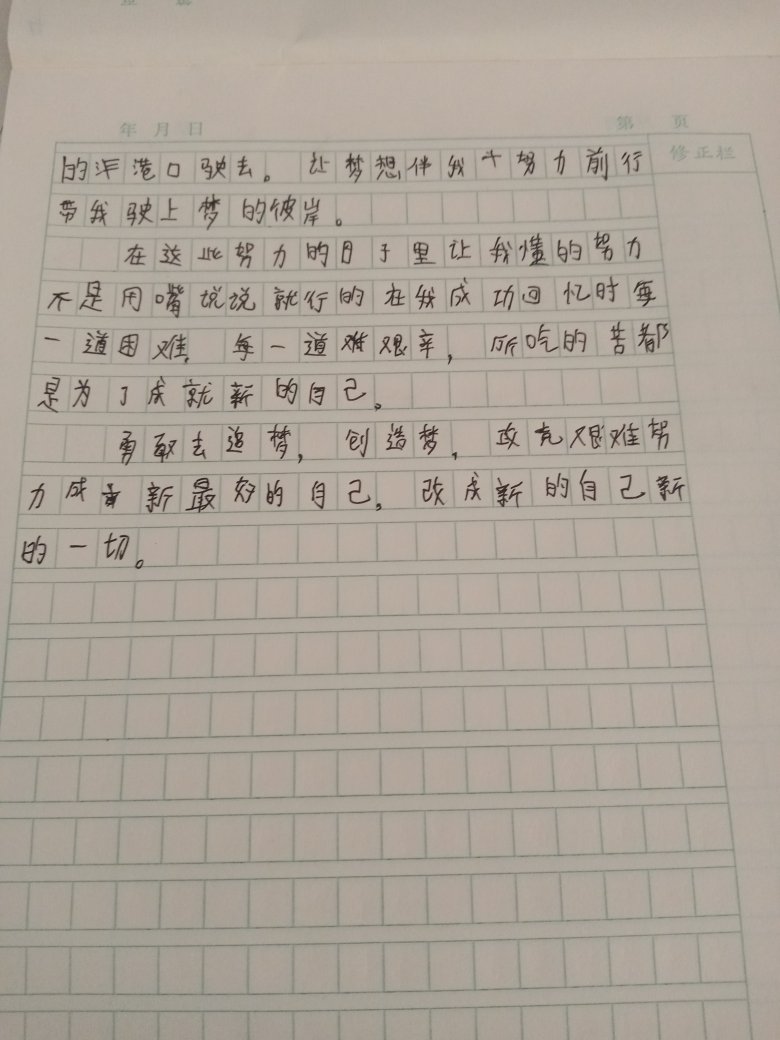 年 月 日 第 页
修正栏
的 港口驶去。让梦想伴我 努力前行
带我驶上梦的彼岸。
在这些努力的日子里让我懂的努力
不是用嘴说说就行的在我成功回忆时每
一道困难,每一道难艰辛,所吃的苦都
是为了成就新的自己。
勇敢去追梦,创造梦,攻克艰难努
力成 新最好的自己,改成新的自己新
的一切。